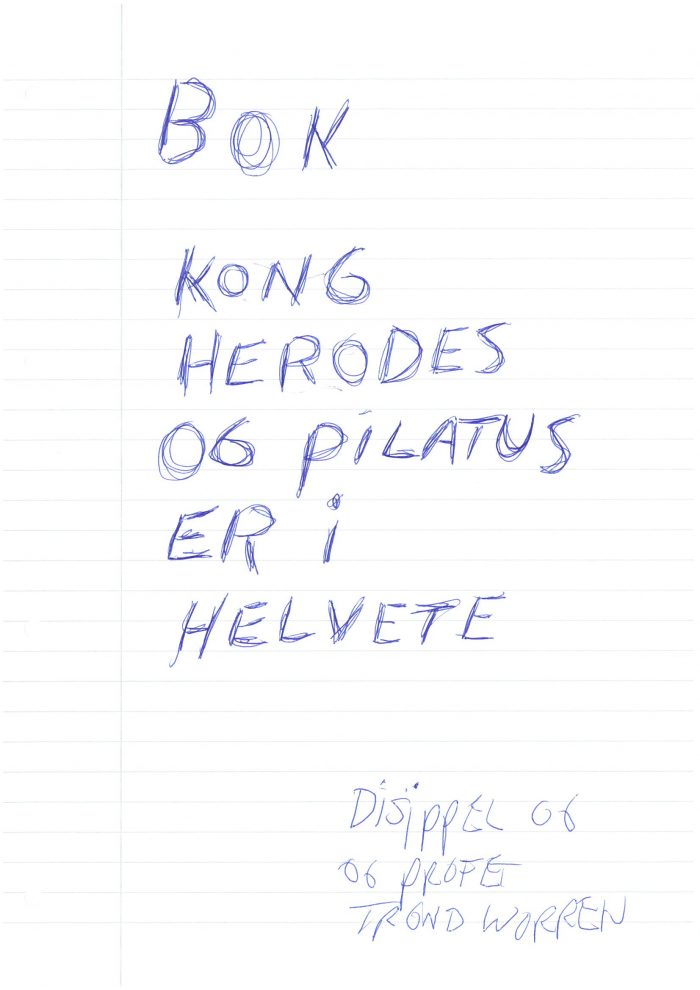 BOK
KONG
HERODES
OG PILATUS
ER i
HELVETE
DiSippEL OG
OG PROFET
TROND WORREN